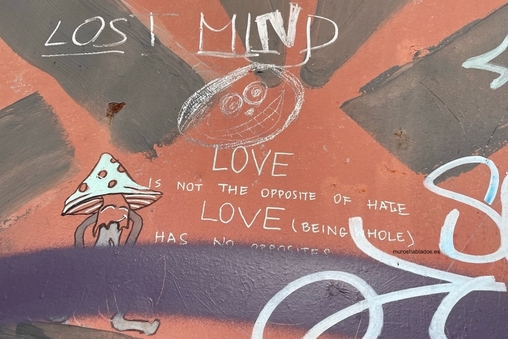 LOST MIND
LOVE
IS NOT THE OPPOSITE OF HATE
LOVE (BEING WHOLE)
HAS NO OPPOSITES
muroshablados.es